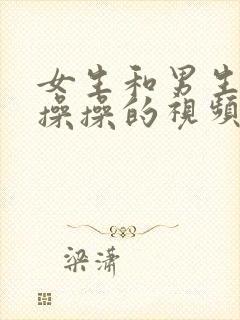 女生和男生
操操的視頻
梁潇